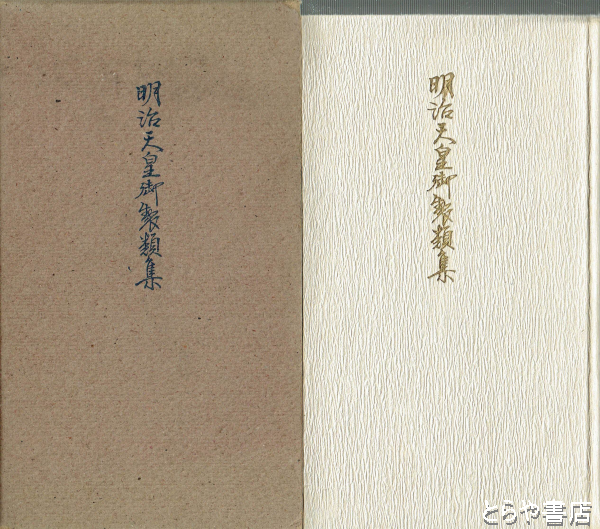 明治天皇御製類集
明治天皇御製類集
とらや書店